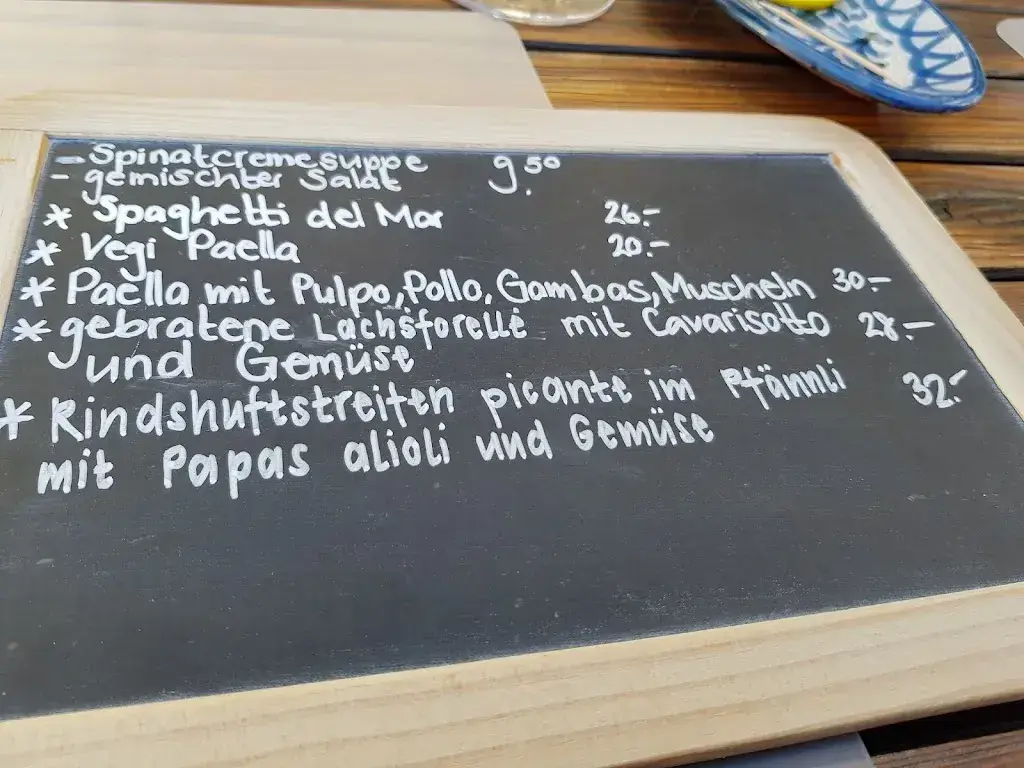 - Spinatcremesuppe 9.50
- gemischter Salat
* Spaghetti del Mar 26.-
* Vegi Paella 20.-
* Paella mit Pulpo, Pollo, Gambas, Muscheln 30.-
* gebratene Lachsforelle mit Cavarisotto 28.-
und Gemüse
* Rindshuftstreifen picante im Pfännli 32.-
mit Papas alioli und Gemüse